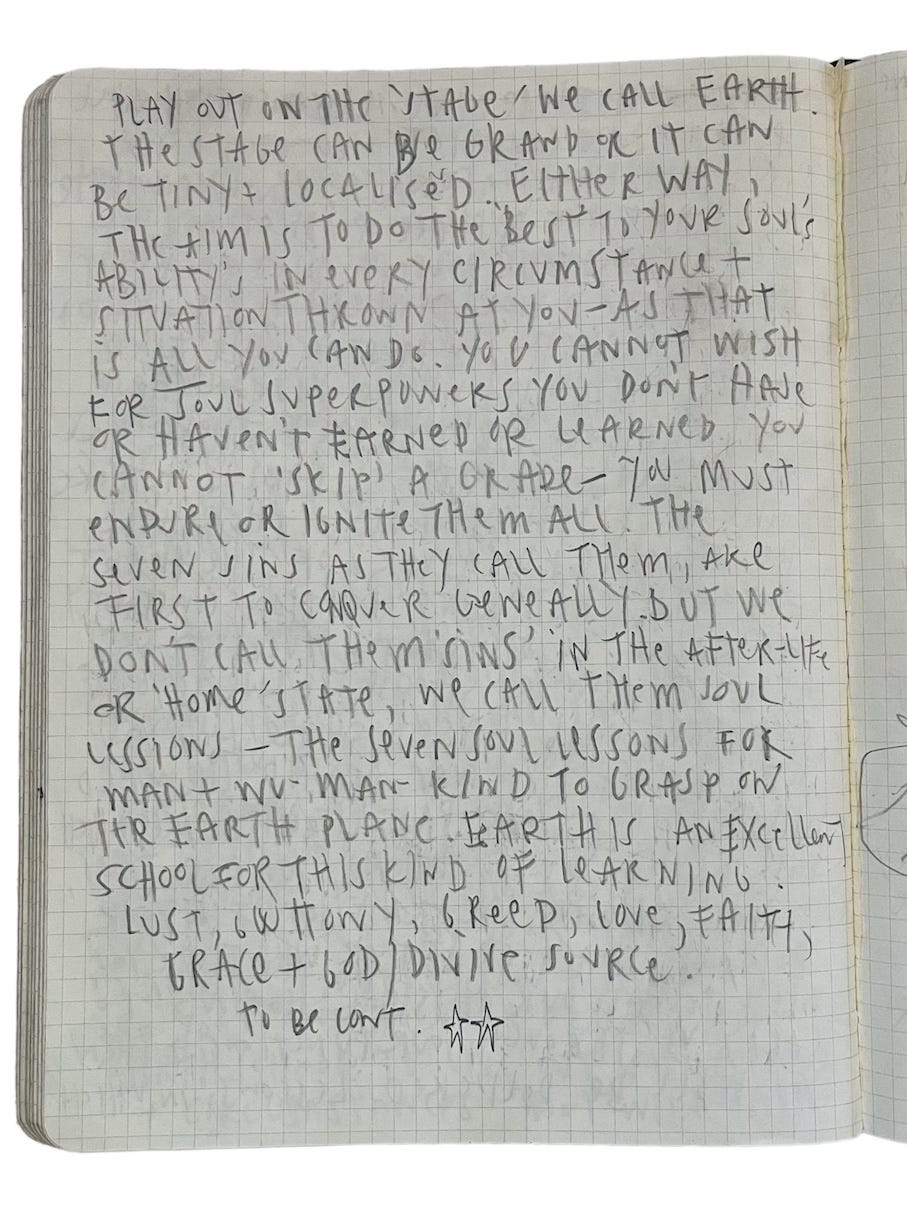 PLAY OUT ON THE 'STAGE' WE CALL EARTH.
THE STAGE CAN BE GRAND OR IT CAN
BE TINY + LOCALISED. EITHER WAY,
THE AIM IS TO DO THE 'BEST' TO YOUR SOUL'S
ABILITY'S IN EVERY CIRCUMSTANCE +
SITUATION THROWN AT YOU - AS THAT
IS ALL YOU CAN DO. YOU CANNOT WISH
FOR SOUL SUPERPOWERS YOU DON'T HAVE
OR HAVEN'T EARNED OR LEARNED YOU
CANNOT 'SKIP' A GRADE - YOU MUST
ENDURE OR IGNITE THEM ALL. THE
SEVEN SINS AS THEY CALL THEM, ARE
FIRST TO CONQUER GENEALLY. BUT WE
DON'T CALL THEM 'SINS' IN THE AFTER-LIFE
OR 'HOME' STATE, WE CALL THEM SOUL
LESSIONS - THE SEVEN SOUL LESSONS FOR
MAN + WO-MAN-KIND TO GRASP ON
THR EARTH PLANE. EARTH IS AN EXCELLENT
SCHOOL FOR THIS KIND OF LEARNING.
LUST, GLUTTONY, GREED, LOVE, FAITH,
GRACE + GOD/DIVINE SOURCE.
TO BE CONT. ☆☆